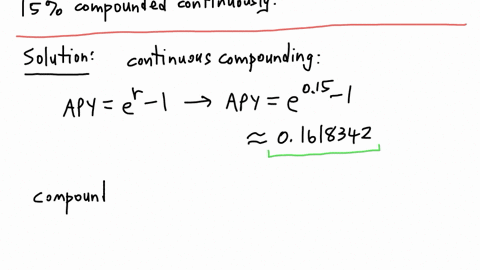 15% compounded continuously.
Solution: continuous compounding:
APY = e^r - 1 → APY = e^0.15 - 1
≈ 0.1618342
compound